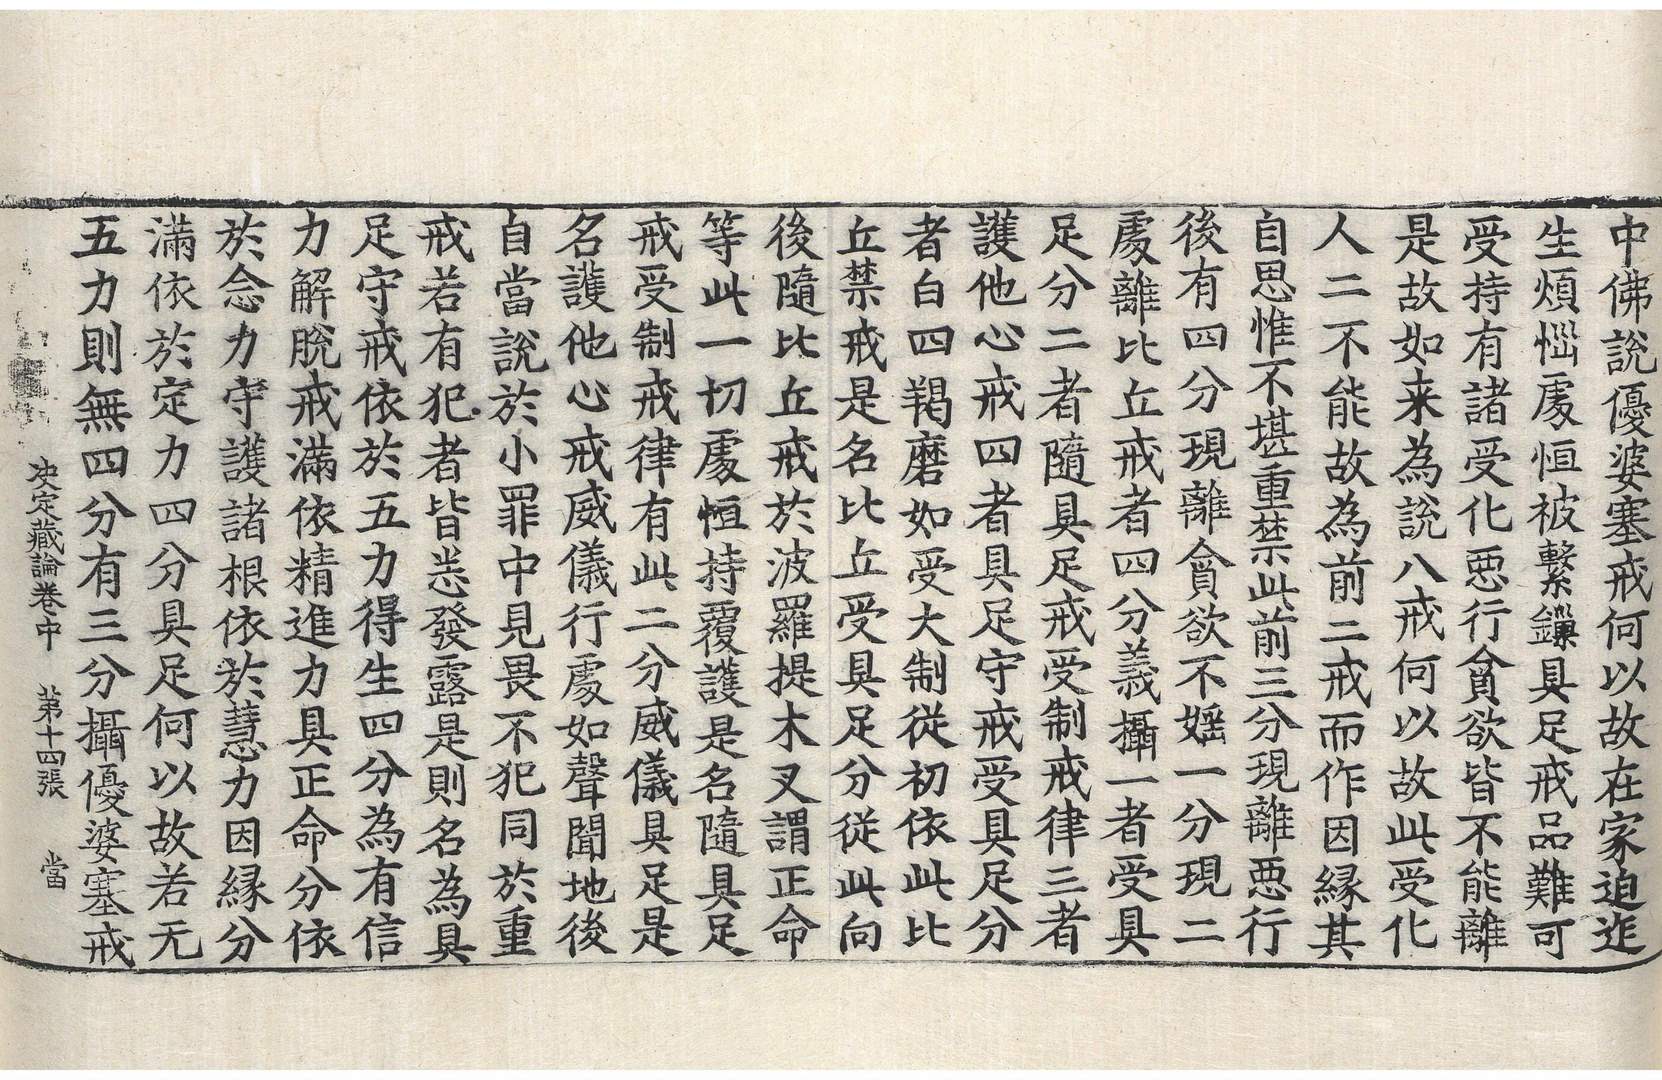 中佛說優婆塞戒何以故在家迫迮
生煩惱處恒被繫鏁具足戒品難可
受持有諸受化惡行貪欲皆不能離
是故如来為說八戒何以故此受化
人二不能故為前二戒而作因縁其
自思惟不堪重禁此前三分現離惡行
後有四分現離貪欲不婬一分現二
處離比丘戒者四分義攝一者受具
足分二者隨具足戒受制戒律三者
護他心戒四者具足守戒受具足分
者白四羯磨如受大制從初依此比
丘禁戒是名比丘受具足分從此向
後隨比丘戒於波羅提木叉謂正命
等此一切處恒持覆護是名隨具足
戒受制戒律有此二分威儀具足是
名護他心戒威儀行處如聲聞地後
自當說於小罪中見畏不犯同於重
戒若有犯者皆悉發露是則名為具
足守戒依於五力得生四分為有信
力解脫戒滿依精進力具正命分依
於念力守護諸根依於慧力因縁分
滿依於定力四分具足何以故若无
五力則無四分有三分攝優婆塞戒
决定藏論卷中 第十四張 當